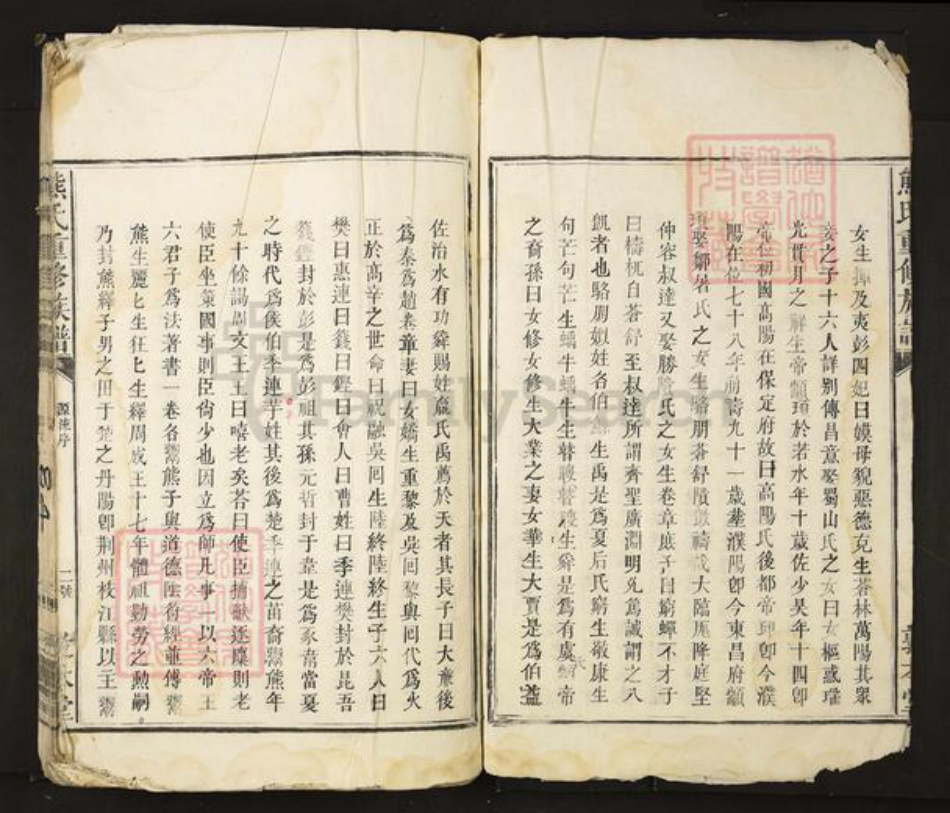 熊氏重修族譜
女生揮及夷彭四妃曰嫫母貌惡德充生蒼林萬陽其眾
妾之子十六人詳別傳昌意娶蜀山氏之女曰女樞感瑤
光貫月之祥生帝顓頊於若水年十歲佐少昊年十四卽
帝位初國高陽在保定府故曰高陽氏後都帝邱卽今濮
陽在位七十八年前壽九十一歲塟濮陽卽今東昌府顓
頊娶鄒屠氏之女生駱朋蒼舒隤敳檮戭大臨厖降庭堅
仲容叔達又娶勝隍氏之女生卷章庶子曰窮蟬不才子
曰檮杌自蒼舒至叔達所謂齊聖廣淵明允篤誠謂之八
凱者也駱朋姒姓名伯鯀生禹是爲夏后氏窮生敬康生
句芒句芒生蟜牛蟜牛生瞽瞍瞽瞍生舜是爲有虞氏帝
之裔孫曰女修女修生大業之妻女華生大賈是爲伯益
佐治水有功舜賜姓嬴氏禹薦於天者其長子曰大㢘後
爲秦爲趙卷章妻曰女嬌生重黎及吳囘黎與囘代爲火
正於高辛之世命曰祝融吳囘生陸終陸終生子六人曰
樊曰惠連曰籛曰鏗曰會人曰曹姓曰季連樊封於昆吾
籛鏗封於彭是爲彭祖其孫元哲封于韋是爲豕韋當夏
之時代爲侯伯季連芈姓其後爲楚季連之苗裔鬻熊年
九十餘謁周文王王曰嘻老矣荅曰使臣捕獸逐麋則老
使臣坐策國事則臣尙少也因立爲師凡事一以六帝王
六君子爲法著書一卷名鬻熊子與道德陰符經並傳鬻
熊生麗匕生狂匕生繹周成王十七年體祖勤勞之勲嗣
乃封熊繹子男之田于楚之丹陽卽荆州枝江縣以王鬻
熊氏重修族譜
源流序
二號